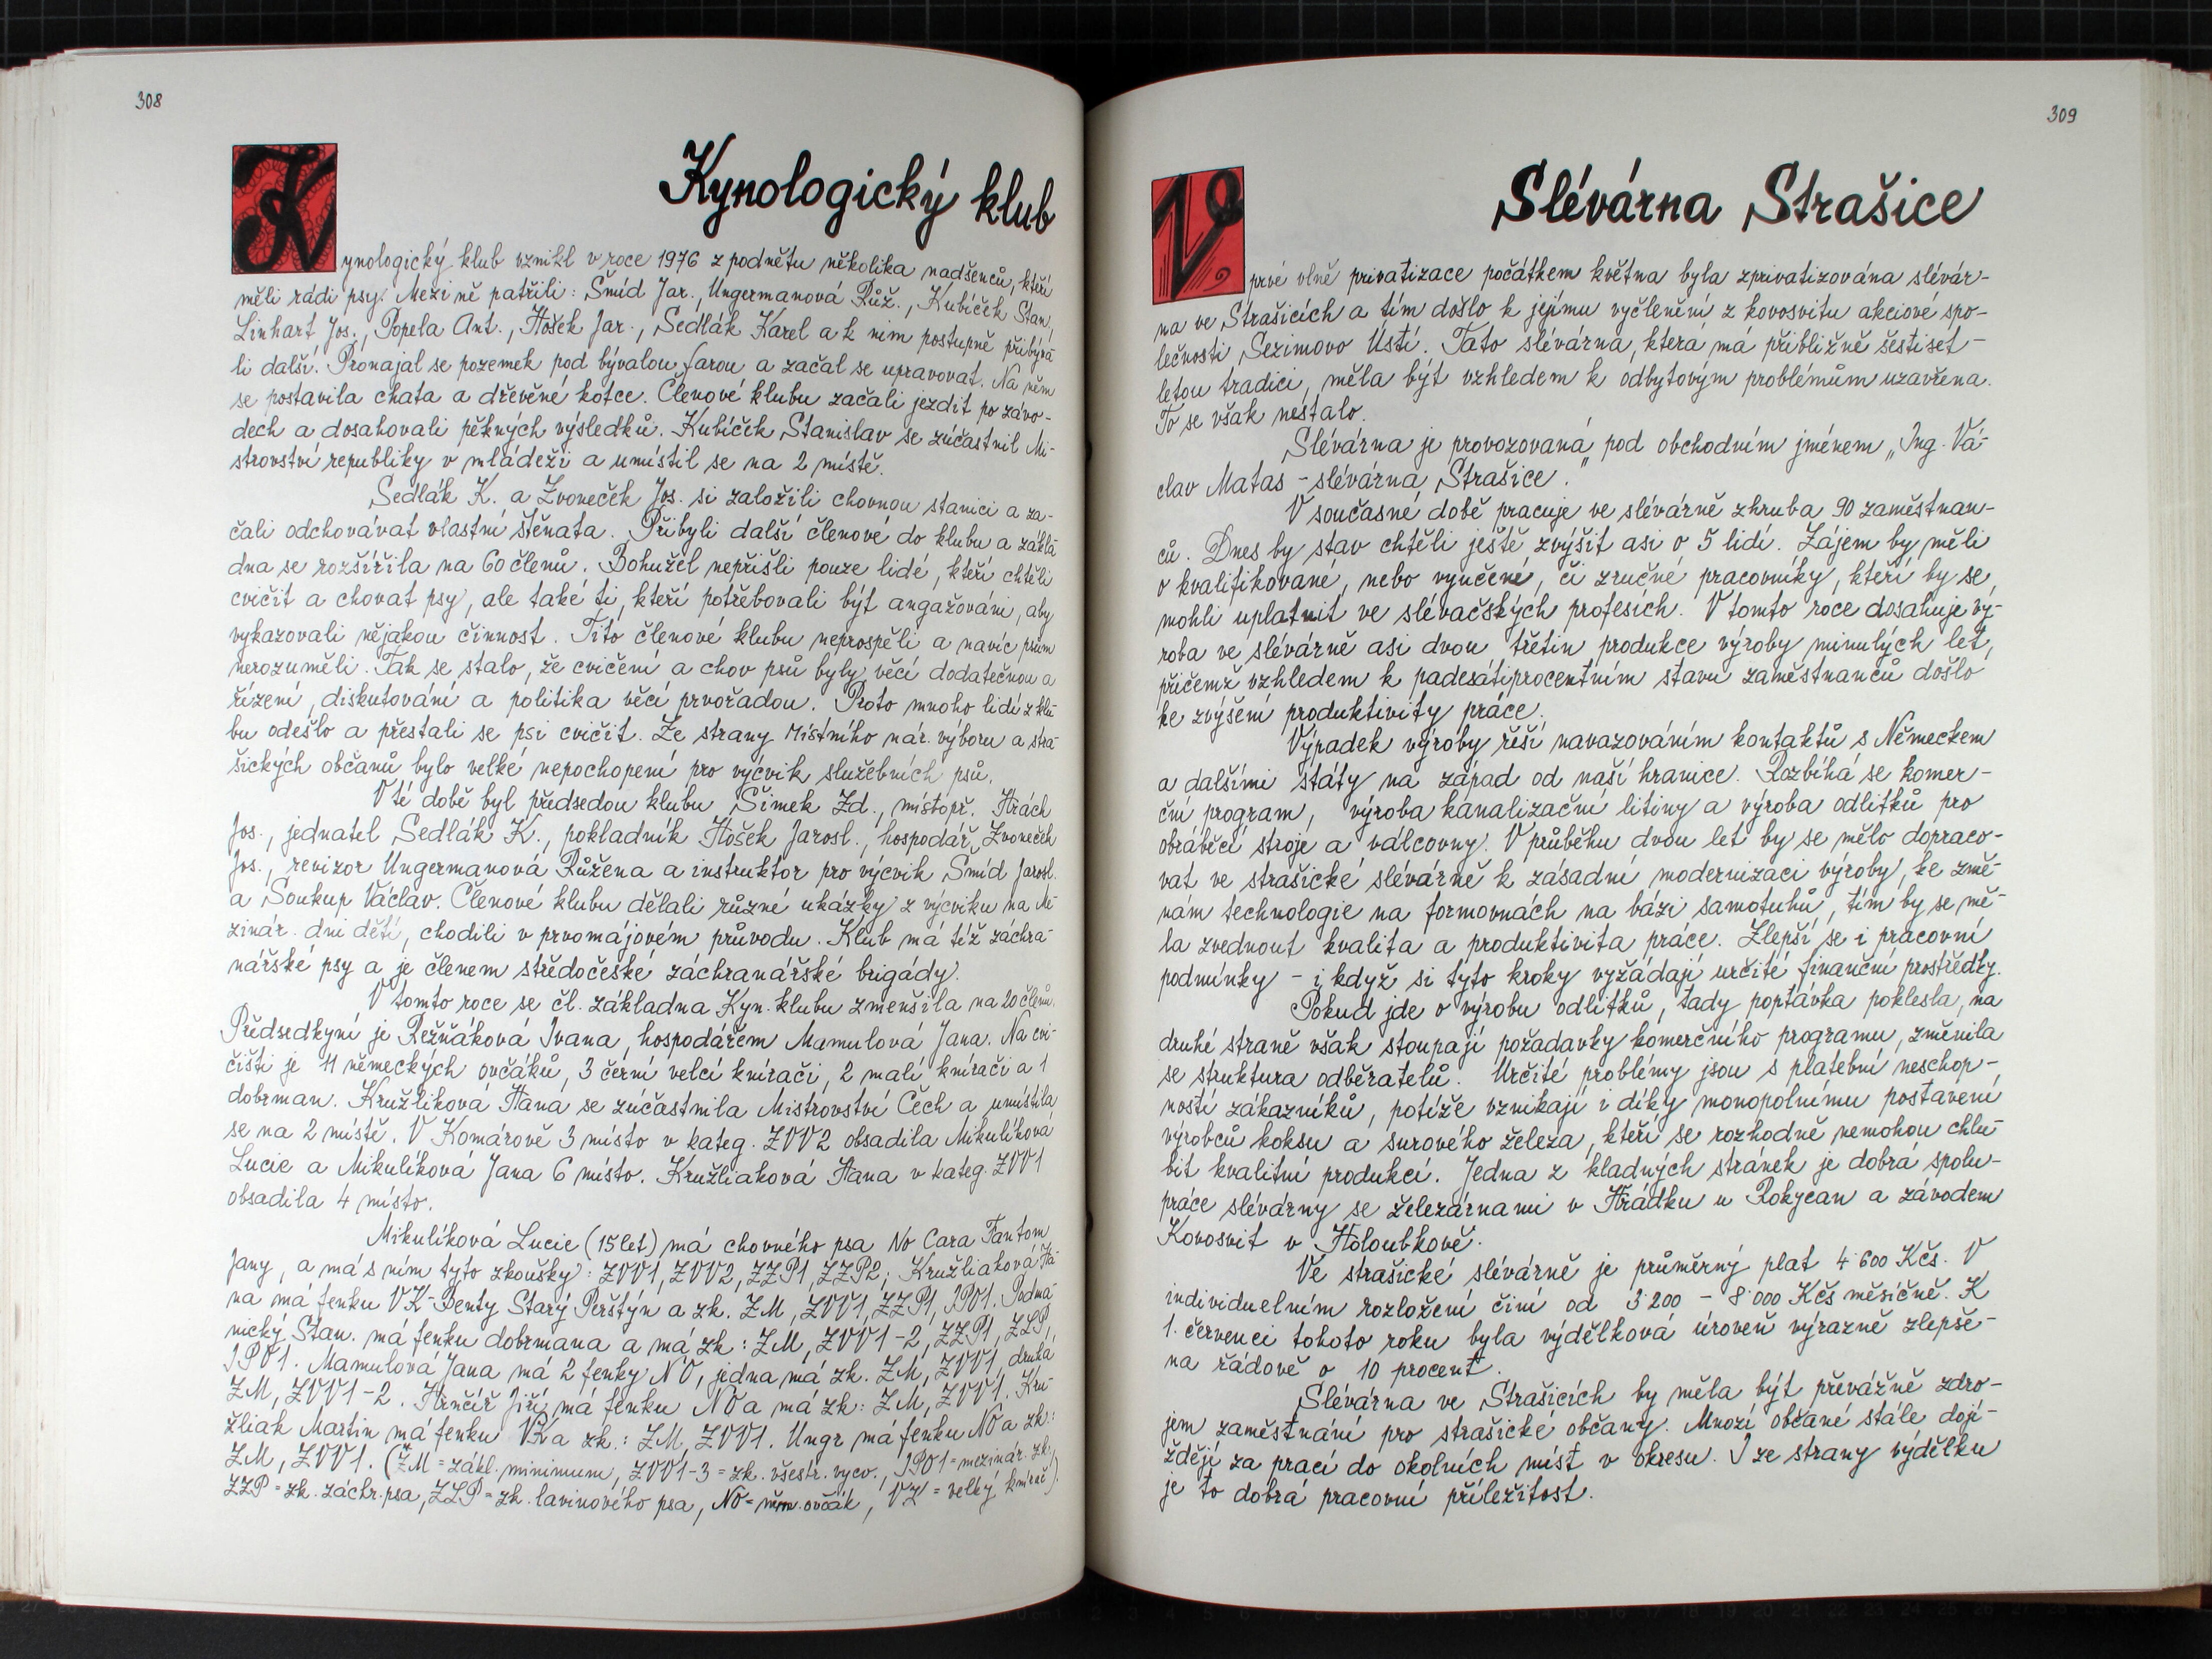 308
Kynologický klub
Kynologický klub vznikl v roce 1976 z podnětu několika nadšenců, kteří
měli rádi psy. Mezi ně patřili: Šmíd Jar., Ungermanová Růž., Kubíček Stan,
Linhart Jos., Popela Ant., Hošek Jar., Sedlák Karel a k nim postupně přibýva
li další. Pronajal se pozemek pod bývalou farou a začal se upravovat. Na něm
se postavila chata a dřevěné kotce. Členové klubu začali jezdit po závo-
dech a dosahovali pěkných výsledků. Kubíček Stanislav se zúčastnil Mi-
strovství republiky v mládeži a umístil se na 2 místě.
Sedlák K. a Zvoneček Jos. si založili chovnou stanici a za-
čali odchovávat vlastní štěnata. Přibyli další členové do klubu a zákla
dna se rozšířila na 60 členů. Bohužel nepřišli pouze lidé, kteří chtěli
cvičit a chovat psy, ale také ti, kteří potřebovali být angažováni, aby
vykazovali nějakou činnost. Tito členové klubu neprospěli a navíc psům
nerozuměli. Tak se stalo, že cvičení a chov psů byly věcí dodatečnou a
řízení, diskutování a politika věcí prvořadou. Proto mnoho lidí z klu
bu odešlo a přestali se psi cvičit. Ze strany Místního nár. výboru a stra
šických občanů bylo velké nepochopení pro výcvik služebních psů.
V té době byl předsedou klubu Šimek Zd., místopř. Hrách
Jos., jednatel Sedlák K., pokladník Hošek Jarosl., hospodář Zvoneček
Jos., revizor Ungermanová Růžena a instruktor pro výcvik Šmíd Jarosl.
a Soukup Václav. Členové klubu dělali různé ukázky z výcviku na Me
zinár. dni dětí, chodili v prvomájovém průvodu. Klub má též záchra-
nářské psy a je členem středočeské záchranářské brigády.
V tomto roce se čl. základna Kyn. klubu zmenšila na 20 členů.
Předsedkyní je Režňáková Ivana, hospodářem Mamulová Jana. Na cvi-
čišti je 11 německých ovčáků, 3 černí velcí knírači, 2 malí knírači a 1
dobrman. Kružlíková Hana se zúčastnila Mistrovství Čech a umístila
se na 2 místě. V Komárově 3 místo v kateg. ZVV2 obsadila Mikulíková
Lucie a Mikulíková Jana 6 místo. Kružliaková Hana v kateg. ZVV1
obsadila 4 místo.
Mikulíková Lucie (15 let) má chovného psa No Cara Fantom
Jany, a má s ním tyto zkoušky: ZVV1, ZVV2, ZZP1, ZZP2; Kružliaková Ha
na má fenku VK-Benty Starý Perštýn a zk. ZM, ZVV1, ZZP1, IPO1. Podma
nický Stan. má fenku dobrmana a má zk: ZM, ZVV1-2, ZZP1, ZLP,
IPO1. Mamulová Jana má 2 fenky NO, jedna má zk. ZM, ZVV1, druhá
ZM, ZVV1-2. Hrnčíř Jiří má fenku NO a má zk: ZM, ZVV1. Kru-
žliak Martin má fenku VK a zk.: ZM, ZVV1. Ungr má fenku NO a zk:
ZM, ZVV1. (ZM = zákl. minimum, ZVV1-3 = zk. všestr. vycv., IPO1 = mezinár. zk.,
ZZP = zk. záchr. psa, ZLP = zk. lavinového psa, NO = něm. ovčák, VK = velký knírač)
309
Slévárna Strašice
V prvé vlně privatizace počátkem května byla zprivatizována slévár-
na ve Strašicích a tím došlo k jejímu vyčlenění z kovosvitu akciové spo-
lečnosti Sezimovo Ústí. Tato slévárna, která má přibližně šestiset-
letou tradici, měla být vzhledem k odbytovým problémům uzavřena.
To se však nestalo.
Slévárna je provozovaná pod obchodním jménem „Ing. Vá-
clav Matas - slévárna Strašice."
V současné době pracuje ve slévárně zhruba 90 zaměstnan-
ců. Dnes by stav chtěli ještě zvýšit asi o 5 lidí. Zájem by měli
o kvalifikované, nebo vyučené, či zručné pracovníky, kteří by se
mohli uplatnit ve slévačských profesích. V tomto roce dosahuje vý-
roba ve slévárně asi dvou třetin produkce výroby minulých let,
přičemž vzhledem k padesátiprocentním stavu zaměstnanců došlo
ke zvýšení produktivity práce.
Výpadek výroby řeší navazováním kontaktů s Německem
a dalšími státy na západ od naší hranice. Rozbíhá se komer-
ční program, výroba kanalizační litiny a výroba odlitků pro
obráběcí stroje a válcovny. V průběhu dvou let by se mělo dopraco-
vat ve strašické slévárně k zásadní modernizaci výroby, ke změ-
nám technologie na formovnách na bázi samotuhů, tím by se mě-
la zvednout kvalita a produktivita práce. Zlepší se i pracovní
podmínky - i když si tyto kroky vyžádají určité finanční prostředky.
Pokud jde o výrobu odlitků, tady poptávka poklesla, na
druhé straně však stoupají požadavky komerčního programu, změnila
se struktura odběratelů. Určité problémy jsou s platební neschop-
ností zákazníků, potíže vznikají i díky monopolnímu postavení
výrobců koksu a surového železa, kteří se rozhodně nemohou chlu-
bit kvalitní produkcí. Jedna z kladných stránek je dobrá spolu-
práce slévárny se železárnami v Hrádku u Rokycan a závodem
Kovosvit v Holoubkově.
Ve strašické slévárně je průměrný plat 4 600 Kčs. V
individuelním rozložení činí od 3 200 - 8 000 Kčs měsíčně. K
1. červenci tohoto roku byla výdělková úroveň výrazně zlepše-
na řádově o 10 procent.
Slévárna ve Strašicích by měla být převážně zdro-
jem zaměstnání pro strašické občany. Mnozí občané stále dojí-
ždějí za prací do okolních míst v okresu. I ze strany výdělku
je to dobrá pracovní příležitost.